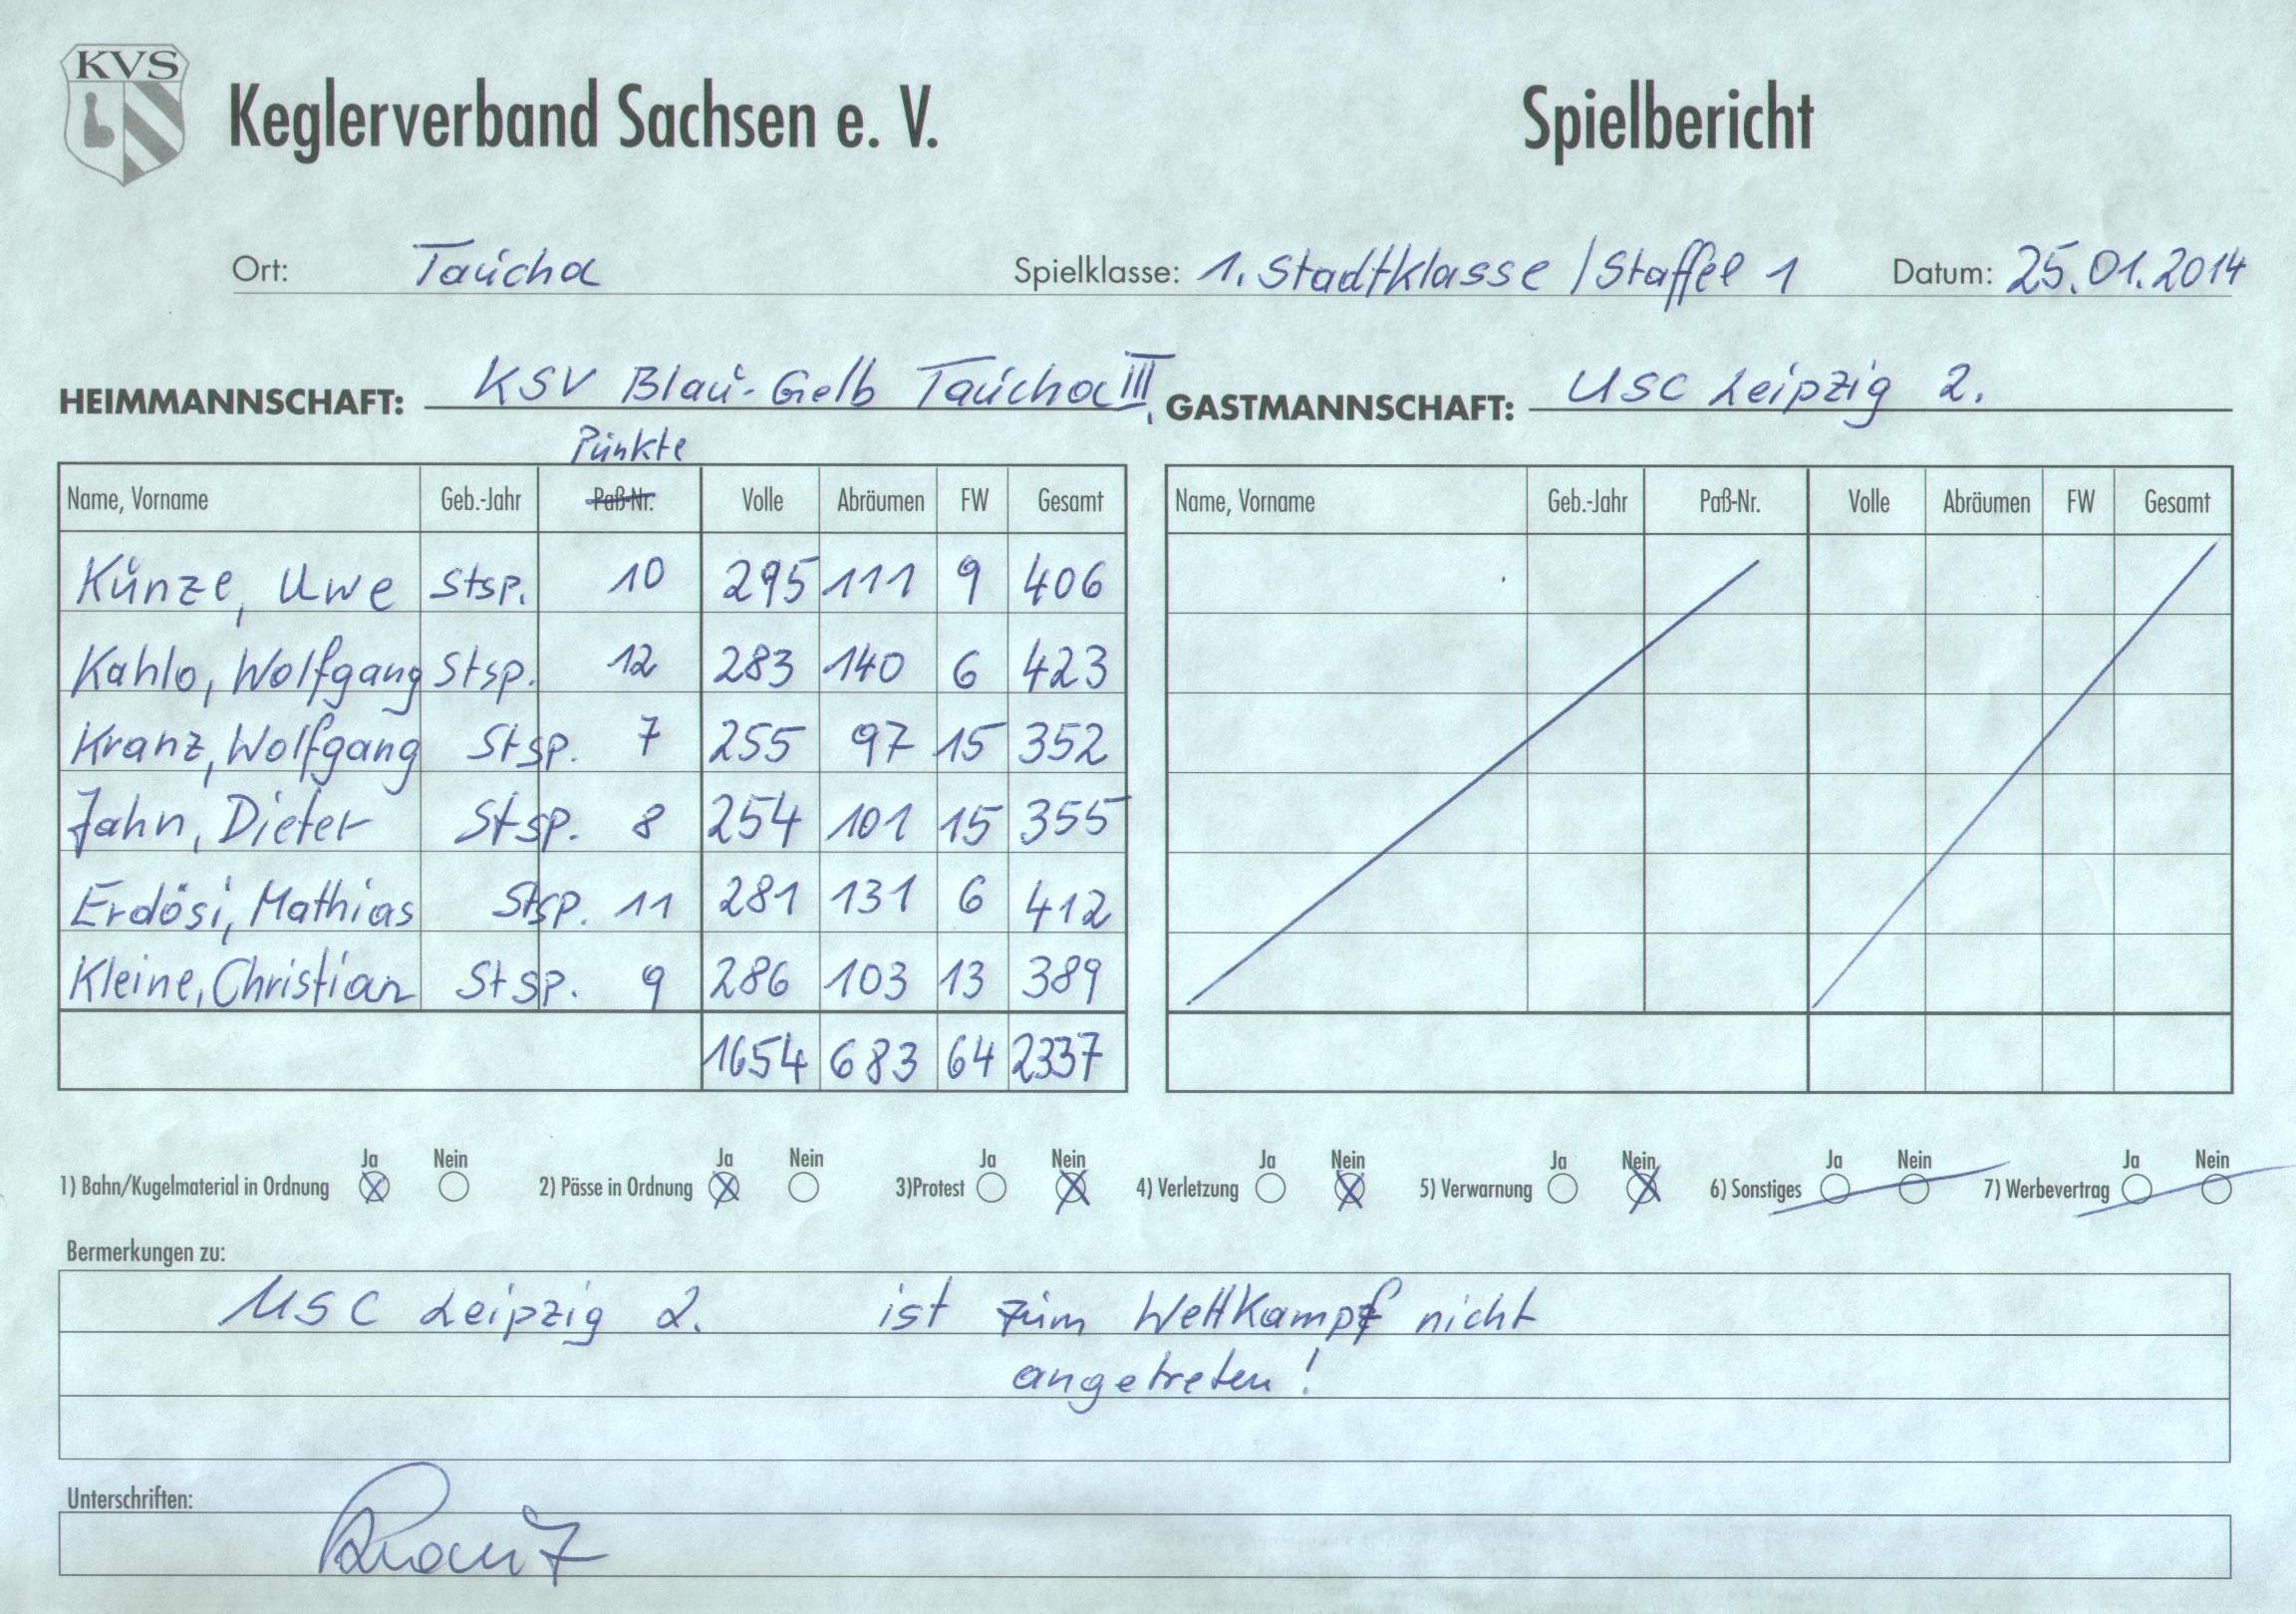 KVS
Keglerverband Sachsen e. V. Spielbericht
Ort: Taucha Spielklasse: 1. Stadtklasse / Staffel 1 Datum: 25.01.2014
HEIMMANNSCHAFT: KSV Blau-Gelb Taucha III. GASTMANNSCHAFT: USC Leipzig 2.
Punkte
Name, Vorname Geb.-Jahr Paß-Nr. Volle Abräumen FW Gesamt Name, Vorname Geb.-Jahr Paß-Nr. Volle Abräumen FW Gesamt
Kunze, Uwe Stsp. 10 295 111 9 406
Kahlo, Wolfgang Stsp. 12 283 140 6 423
Kranz, Wolfgang Stsp. 7 255 97 15 352
Jahn, Dieter Stsp. 8 254 101 15 355
Erdösi, Mathias Stsp. 11 281 131 6 412
Kleine, Christian Stsp. 9 286 103 13 389
1654 683 64 2337
Ja Nein Ja Nein Ja Nein Ja Nein Ja Nein Ja Nein Ja Nein
1) Bahn/Kugelmaterial in Ordnung 2) Pässe in Ordnung 3)Protest 4) Verletzung 5) Verwarnung 6) Sonstiges 7) Werbevertrag
Bermerkungen zu:
USC Leipzig 2. ist zum Wettkampf nicht
angetreten!
Unterschriften:
Kranz